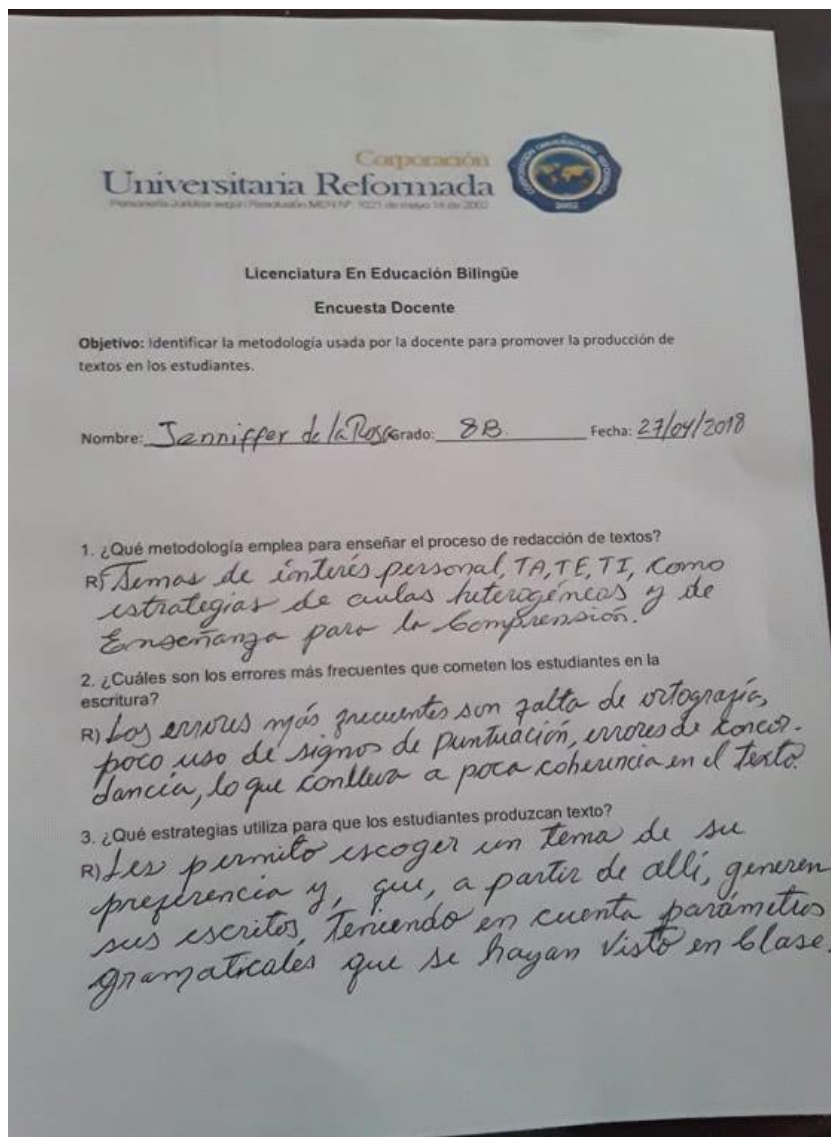 Corporación
Universitaria Reformada
Personería Jurídica según Resolución MEN Nº. 1021 de mayo 14 de 2002
CORPORACIÓN UNIVERSITARIA REFORMADA
2002
Licenciatura En Educación Bilingüe
Encuesta Docente
Objetivo: Identificar la metodología usada por la docente para promover la producción de
textos en los estudiantes.
Nombre: Jenniffer de la Rosa Grado: 8B. Fecha: 27/04/2018
1. ¿Qué metodología emplea para enseñar el proceso de redacción de textos?
R) Temas de interés personal, TA, TE, TI, como
estrategias de aulas heterogéneas y de
Enseñanza para la Comprensión.
2. ¿Cuáles son los errores más frecuentes que cometen los estudiantes en la
escritura?
R) Los errores más frecuentes son falta de ortografía,
poco uso de signos de puntuación, errores de concor-
dancia, lo que conlleva a poca coherencia en el texto.
3. ¿Qué estrategias utiliza para que los estudiantes produzcan texto?
R) Les permito escoger un tema de su
preferencia y, que, a partir de allí, generen
sus escritos, teniendo en cuenta parámetros
gramaticales que se hayan visto en clase.